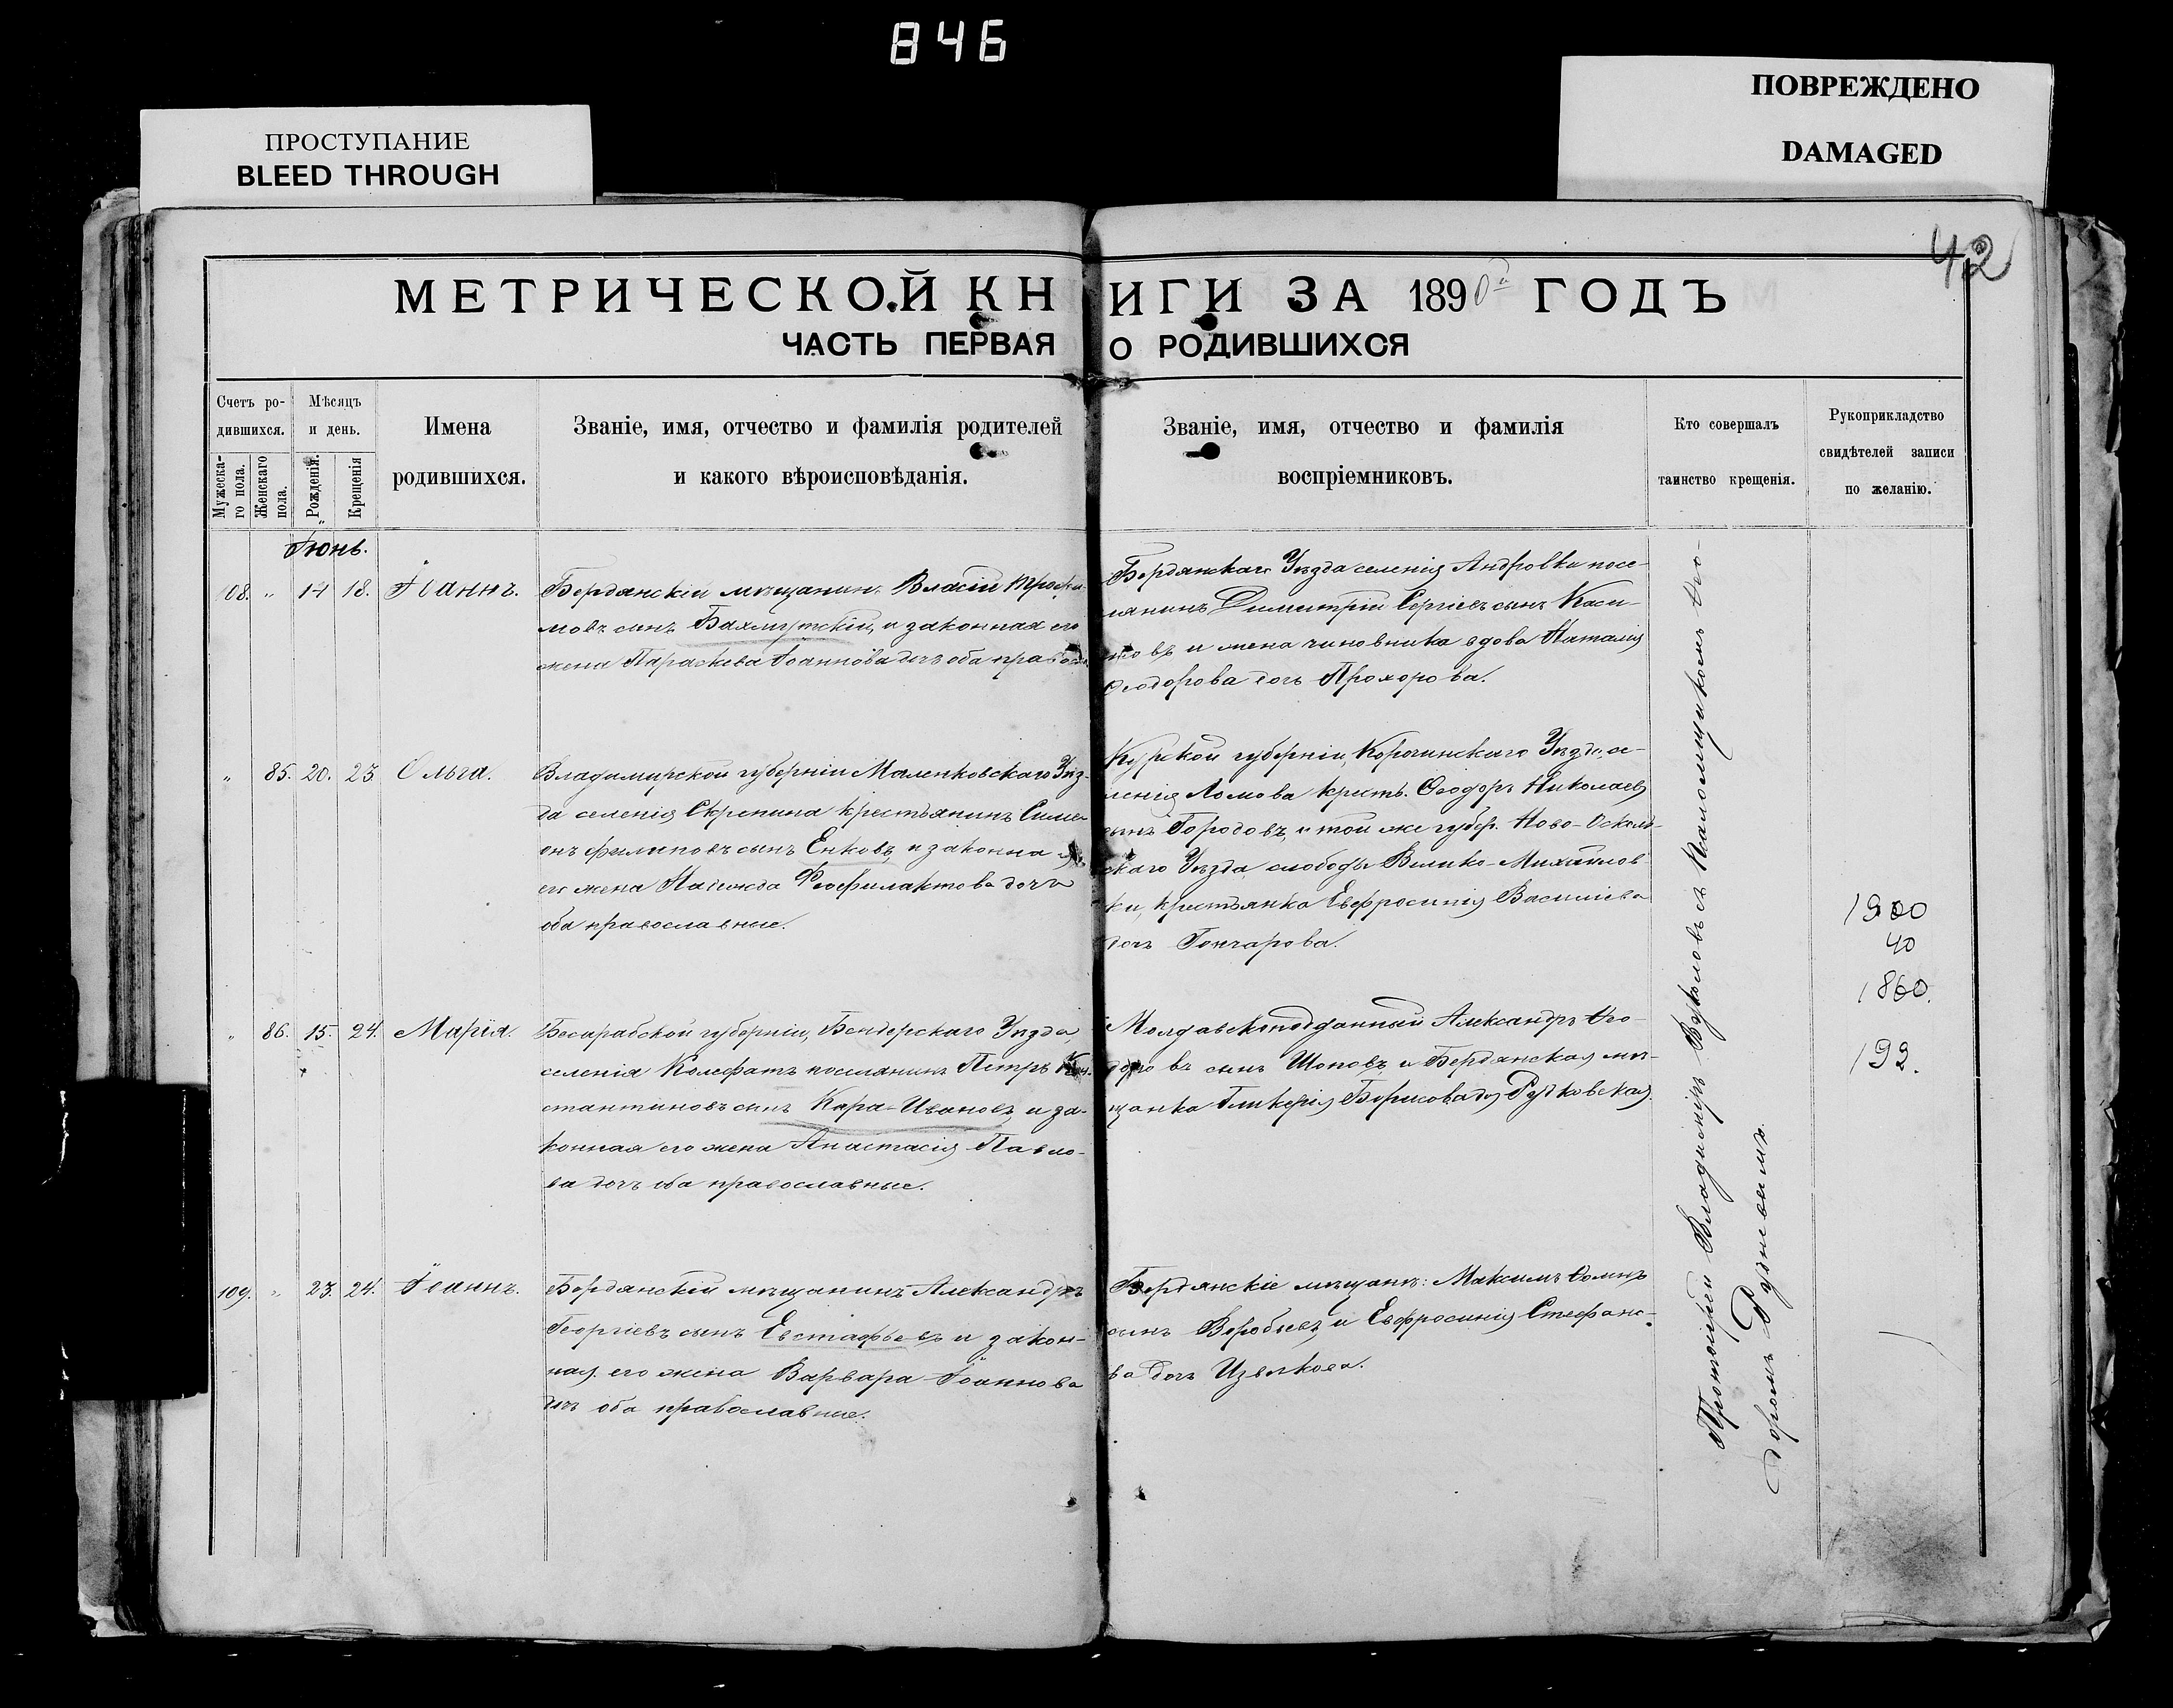 846
ПРОСТУПАНИЕ
BLEED THROUGH
ПОВРЕЖДЕНО
DAMAGED
42
МЕТРИЧЕСКОЙ КНИГИ ЗА 1890й ГОДЪ
ЧАСТЬ ПЕРВАЯ О РОДИВШИХСЯ
Счетъ ро-
дившихся.
Мужеска-
го пола.
Женскаго
пола.
Мѣсяцъ
и день.
Рожденія.
Крещенія
Имена
родившихся.
Званіе, имя, отчество и фамилія родителей
и какого вѣроисповѣданія.
Званіе, имя, отчество и фамилія
воспріемниковъ.
Кто совершалъ
таинство крещенія.
Рукоприкладство
свидѣтелей записи
по желанію.
Іюнь.
108. " 14 18. Іоаннъ.
Бердянскій мѣщанинъ Власій Трофи-
мовъ сынъ Бахмутскій, и законная его
жена Параскева Іоаннова дочь оба
Бердянскаго Уѣзда селенія Андровки посе-
лянинъ Димитрій Сергіевъ сынъ
и жена чиновника вдова Наталія
Феодорова дочь Прохорова.
" 85. 20. 23 Ольга.
Владимирской губерніи Маленковскаго Уѣз-
да селенія Скрипина крестьянинъ Симе-
онъ Филиповъ сынъ Енковъ, и законная
его жена Надежда Феофилактова дочь
оба православные.
Курской губерніи, Корочинскаго Уѣзда, се-
ленія Ломова крест. Феодоръ Николаевъ
сынъ Городовъ, и той же губер. Ново-Осколь-
скаго Уѣзда слободы Велико-Михайлов
ки, крестьянка Евфросинія Василіева
дочь Гончарова.
" 86. 15. 24. Марія.
Бесарабской губерніи, Бендерскаго Уѣзда,
селенія поселянинъ Петръ Кон-
стантиновъ сынъ Кара-Ивановъ, и за-
конная его жена Анастасія Павло-
ва дочь оба православные.
Молдавскоподданный Александръ Фео-
доровъ сынъ Шоповъ, и Бердянская мѣ-
щанка Гликерія Борисова до. Рудковская
109. " 23. 24. Іоаннъ.
Бердянскій мѣщанинъ Александръ
Георгіевъ сынъ Евстафьевъ и закон-
ная его жена Варвара Іоаннова
дочь оба православные.
Бердянскіе мѣщане: Максимъ Фоминъ
сынъ Воробьевъ, и Евфросинія Стефано-
ва дочь
Протоіерей Владиміръ съ Псаломщикомъ Фео-
доромъ Рудневымъ.
1900
40
1860.
192.